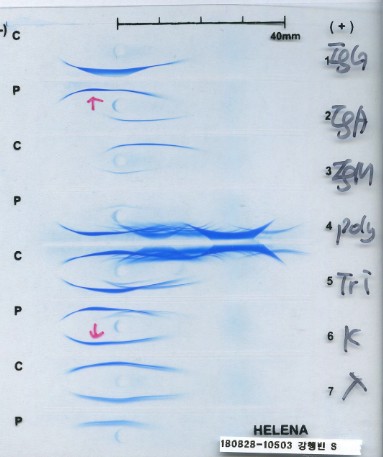 -)
(+)
C
40mm
1 IgG
P
2 IgA
C
3 IgM
P
4 poly
C
5 Tri
P
6 K
C
7 λ
P
HELENA
180828-10503 강행빈 S